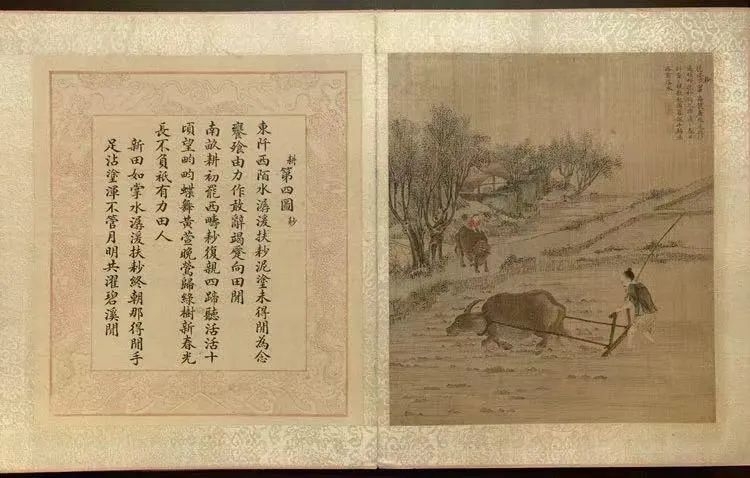 耕第四圖耖
東阡西陌水潺湲扶耖泥塗未得閒為念
饔飧由力作敢辭竭蹙向田閒
南畝耕初罷西疇耖復親四蹄聽活活十
頃望畇畇蝶舞黃萱晚鶯歸綠樹新春光
長不負祇有力田人
新田如掌水潺湲扶耖終朝那得閒手
足沾塗渾不管月明共濯碧溪閒
耖